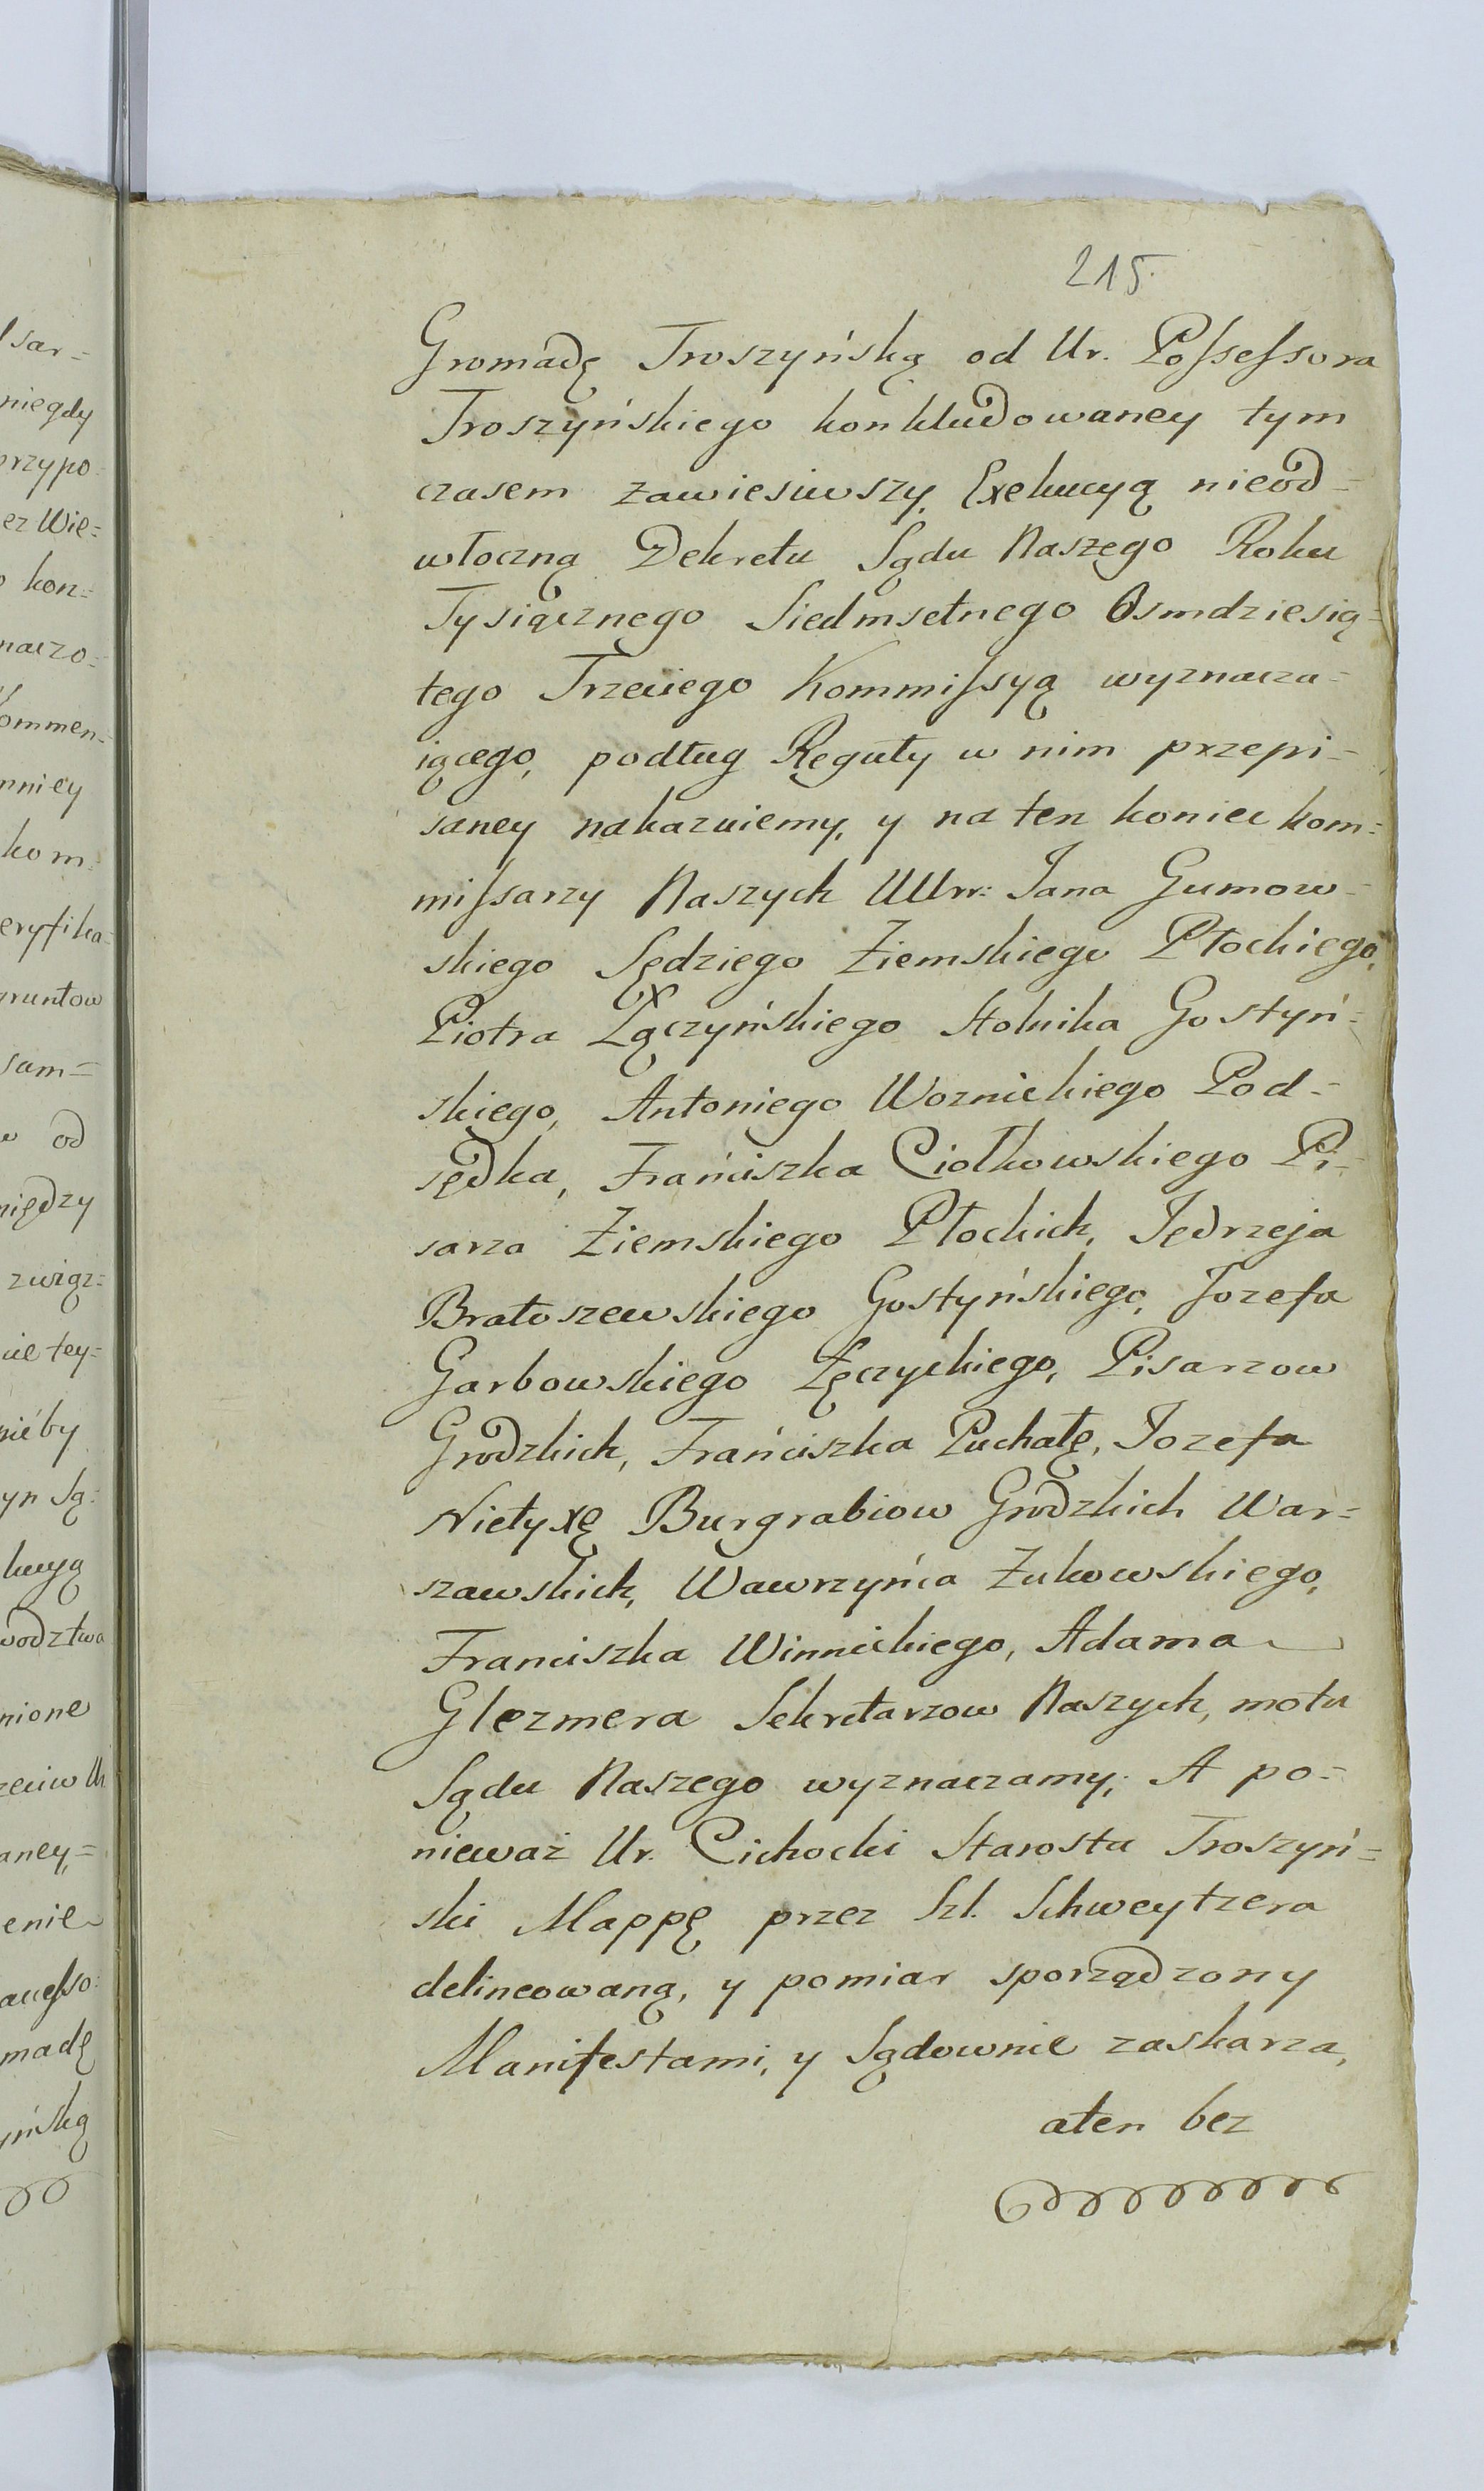 215.
Gromadę Troszyńską od Ur. Possessora
Troszyńskiego konkludowaney tym
czasem zawiesiwszy, Exekucyą nieod=
włoczną Dekretu Sądu Naszego Roku
Tysiącznego Siedmsetnego Osmdziesią=
tego Trzeciego Kommissyą wyznacza=
iącego, podług Reguły w nim przepi=
saney nakazuiemy, y na ten koniec kom=
missarzy Naszych UUrr: Jana Gumow=
skiego Sędziego Ziemskiego Płockiego,
Piotra Łączyńskiego Stolnika Gostyń=
skiego, Antoniego Woznickiego Pod=
sędka, Franciszka Ciołkowskiego Pi=
sarza Ziemskiego Płockich, Jędrzeja
Bratoszewskiego Gostyńskiego, Jozefa
Garbowskiego Łęczyckiego, Pisarzow
Grodzkich, Franciszka Puchałę, Jozefa
Nietyxę Burgrabiow Grodzkich War=
szawskich, Wawrzyńca Żukowskiego,
Franciszka Winnickiego, Adama
Glezmera Sekretarzow Naszych, motu
Sądu Naszego wyznaczamy; A po=
nieważ Ur. Cichocki Starosta Troszyń=
ski Mappę przez Szl. Schweytzera
delineowaną, y pomiar sporządzony
Manifestami, y Sądownie zaskarza,
aten bez
sar=
niegdy
przypo=
ez Wie=
kon=
naczo=
ommen=
mniey
kom=
eryfika=
gruntow
sam=
od
między
związ=
tey=
nieby
yn Są=
kucyą
wodztwa
nione
aney,=
enie
madę
yńską